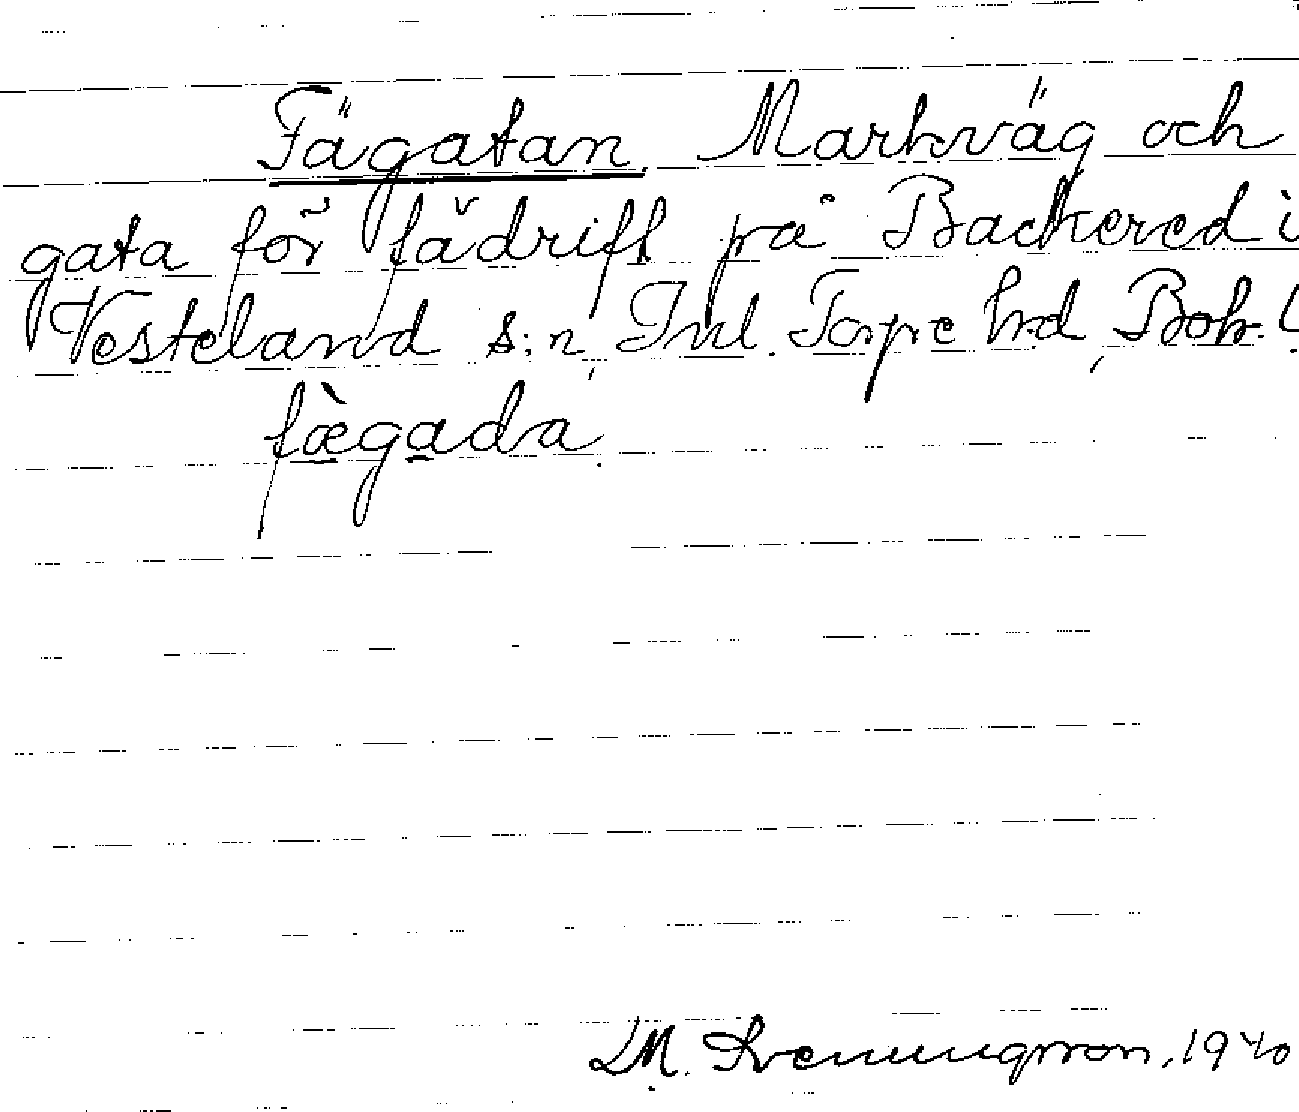 Fägatan Markväg och
gata för fädrift på Backered i
Vesteland s:n, Inl. Torpe hd, Boh. l.
fægada
LM. Svenungsson, 1940